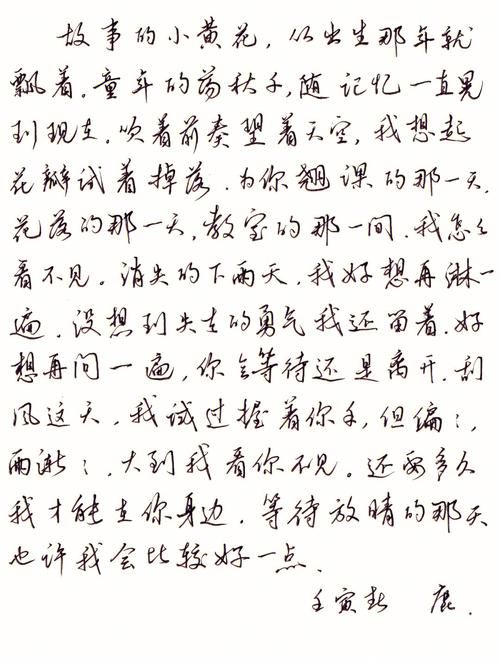 故事的小黄花，从出生那年就
飘着，童年的荡秋千，随记忆一直晃
到现在，吹着前奏望着天空，我想起
花瓣试着掉落，为你翘课的那一天，
花落的那一天，教室的那一间，我怎么
看不见。消失的下雨天，我好想再淋一
遍，没想到失去的勇气我还留着，好
想再问一遍，你会等待还是离开，刮
风这天，我试过握着你手，但偏：，
雨渐：，大到我看你不见。还要多久
我才能在你身边，等待放晴的那天
也许我会比较好一点。
壬寅春 鹿.